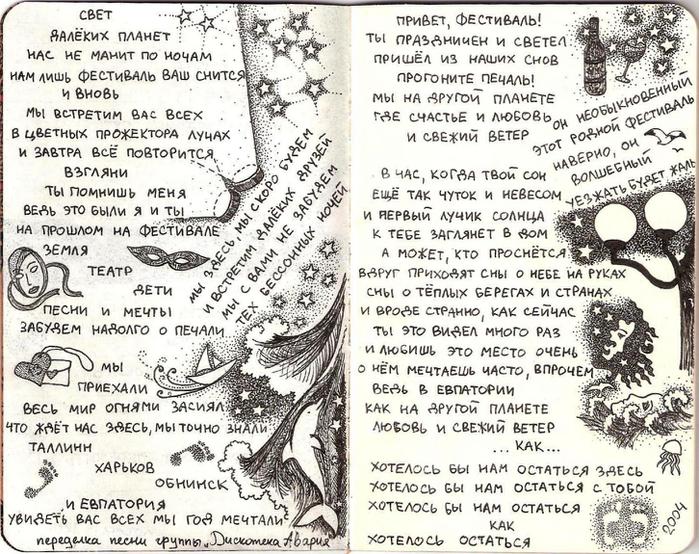 СВЕТ
ДАЛЁКИХ ПЛАНЕТ
НАС НЕ МАНИТ ПО НОЧАМ
НАМ ЛИШЬ ФЕСТИВАЛЬ ВАШ СНИТСЯ
И ВНОВЬ
МЫ ВСТРЕТИМ ВАС ВСЕХ
В ЦВЕТНЫХ ПРОЖЕКТОРА ЛУЧАХ
И ЗАВТРА ВСЁ ПОВТОРИТСЯ
ВЗГЛЯНИ
ТЫ ПОМНИШЬ МЕНЯ
ВЕДЬ ЭТО БЫЛИ Я И ТЫ
НА ПРОШЛОМ НА ФЕСТИВАЛЕ
ЗЕМЛЯ
ТЕАТР
ДЕТИ
ПЕСНИ И МЕЧТЫ
ЗАБУДЕМ НАДОЛГО О ПЕЧАЛИ
МЫ ЗДЕСЬ, МЫ СКОРО БУДЕМ
И ВСТРЕТИМ ДАЛЁКИХ ДРУЗЕЙ
МЫ С ВАМИ НЕ ЗАБУДЕМ
ТЕХ БЕССОННЫХ НОЧЕЙ
МЫ
ПРИЕХАЛИ
ВЕСЬ МИР ОГНЯМИ ЗАСИЯЛ
ЧТО ЖДЁТ НАС ЗДЕСЬ, МЫ ТОЧНО ЗНАЛИ
ТАЛЛИНН
ХАРЬКОВ
ОБНИНСК
И ЕВПАТОРИЯ
УВИДЕТЬ ВАС ВСЕХ МЫ ГОД МЕЧТАЛИ
переделка песни группы „Дискотека Авария"
ПРИВЕТ, ФЕСТИВАЛЬ!
ТЫ ПРАЗДНИЧЕН И СВЕТЕЛ
ПРИШЁЛ ИЗ НАШИХ СНОВ
ПРОГОНИТЕ ПЕЧАЛЬ!
МЫ НА ДРУГОЙ ПЛАНЕТЕ
ГДЕ СЧАСТЬЕ И ЛЮБОВЬ
И СВЕЖИЙ ВЕТЕР
ОН НЕОБЫКНОВЕННЫЙ
ЭТОТ РОДНОЙ ФЕСТИВАЛЬ
НАВЕРНО, ОН
ВОЛШЕБНЫЙ
УЕЗЖАТЬ БУДЕТ ЖАЛЬ
В ЧАС, КОГДА ТВОЙ СОН
ЕЩЁ ТАК ЧУТОК И НЕВЕСОМ
И ПЕРВЫЙ ЛУЧИК СОЛНЦА
К ТЕБЕ ЗАГЛЯНЕТ В ДОМ
А МОЖЕТ, КТО ПРОСНЁТСЯ
ВДРУГ ПРИХОДЯТ СНЫ О НЕБЕ НА РУКАХ
СНЫ О ТЁПЛЫХ БЕРЕГАХ И СТРАНАХ
И ВРОДЕ СТРАННО, КАК СЕЙЧАС
ТЫ ЭТО ВИДЕЛ МНОГО РАЗ
И ЛЮБИШЬ ЭТО МЕСТО ОЧЕНЬ
О НЁМ МЕЧТАЕШЬ ЧАСТО, ВПРОЧЕМ
ВЕДЬ В ЕВПАТОРИИ
КАК НА ДРУГОЙ ПЛАНЕТЕ
ЛЮБОВЬ И СВЕЖИЙ ВЕТЕР
... КАК...
ХОТЕЛОСЬ БЫ НАМ ОСТАТЬСЯ ЗДЕСЬ
ХОТЕЛОСЬ БЫ НАМ ОСТАТЬСЯ С ТОБОЙ
ХОТЕЛОСЬ БЫ НАМ ОСТАТЬСЯ
КАК
ХОТЕЛОСЬ ОСТАТЬСЯ
2004